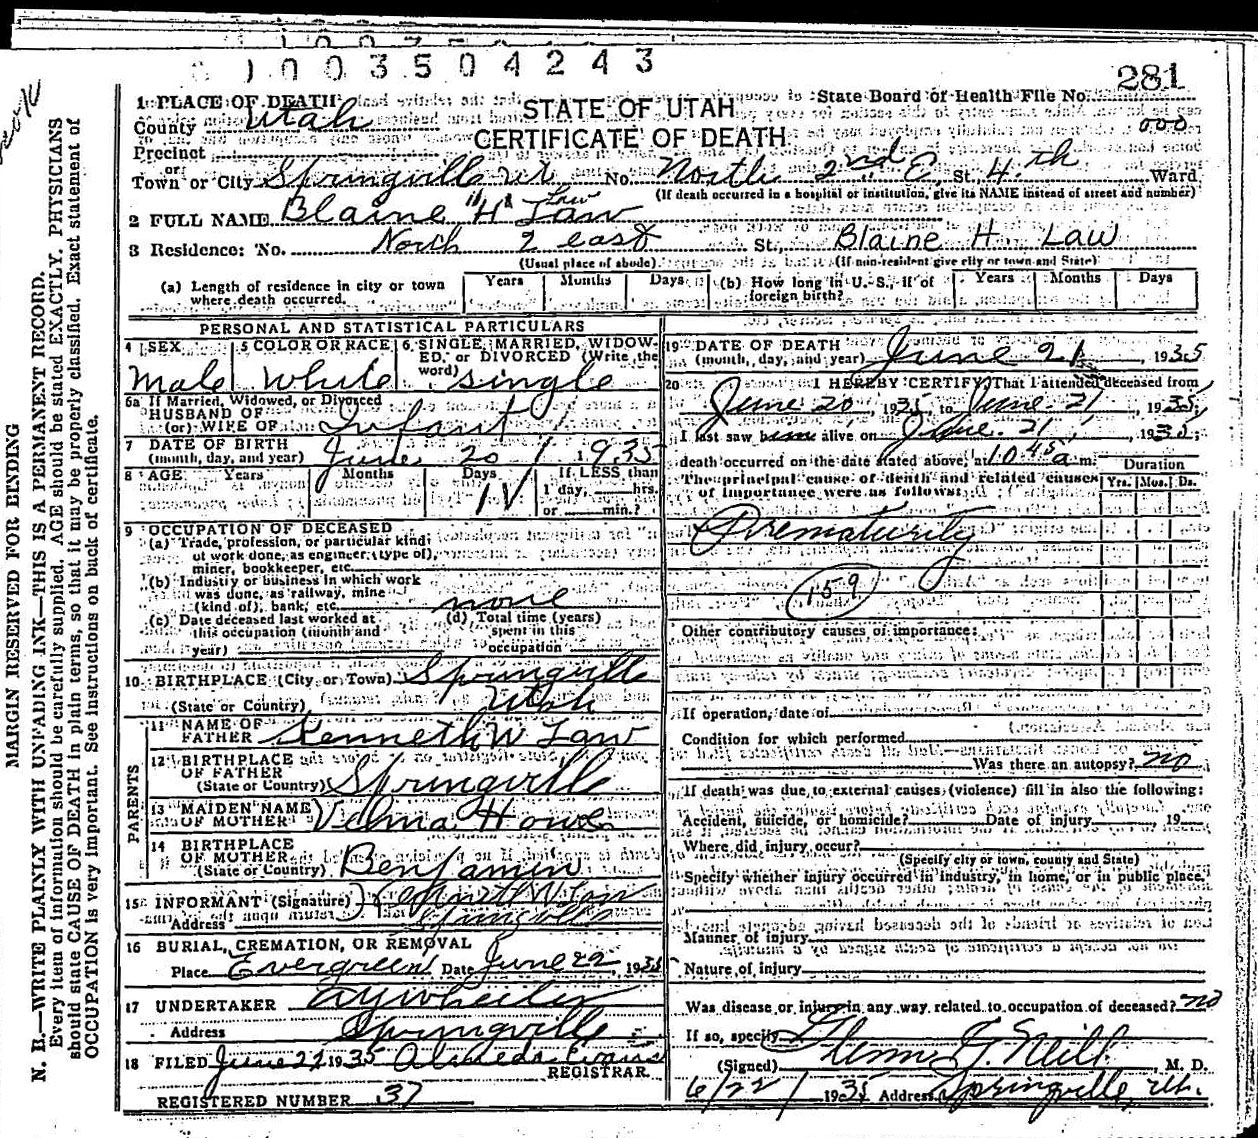 1 0 0 3 5 0 4 2 4 3
281
1 PLACE OF DEATH
STATE OF UTAH
State Board of Health File No.
County Utah
CERTIFICATE OF DEATH
000
Precinct
or
Town or City Springville Ut No. North 2nd E St. 4th Ward
(If death occurred in a hospital or institution, give its NAME instead of street and number)
2 FULL NAME Blaine "H" Law Law
3 Residence: No. North 2 east St. Blaine H. Law
(Usual place of abode) (If non-resident give city or town and State)
(a) Length of residence in city or town where death occurred. Years Months Days (b) How long in U. S., if of foreign birth? Years Months Days
PERSONAL AND STATISTICAL PARTICULARS
4 SEX Male
5 COLOR OR RACE White
6 SINGLE, MARRIED, WIDOWED, or DIVORCED (Write the word) single
6a If Married, Widowed, or Divorced
HUSBAND OF
(or) WIFE OF Infant
7 DATE OF BIRTH
(month, day, and year) June 20 / 1935
8 AGE Years Months Days If LESS than
1 1 day, hrs.
or min.?
9 OCCUPATION OF DECEASED
(a) Trade, profession, or particular kind
of work done, as engineer (type of),
miner, bookkeeper, etc.
(b) Industry or business in which work
was done, as railway, mine
(kind of), bank, etc. none
(c) Date deceased last worked at
this occupation (month and
year)
(d) Total time (years)
spent in this
occupation
10 BIRTHPLACE (City or Town) Springville
(State or Country) Utah
PARENTS
11 NAME OF
FATHER Kenneth W Law
12 BIRTHPLACE
OF FATHER
(State or Country) Springville
13 MAIDEN NAME
OF MOTHER Velma Howe
14 BIRTHPLACE
OF MOTHER
(State or Country) Benjamin
15 INFORMANT (Signature) Kenneth W Law
Address Springville
16 BURIAL, CREMATION, OR REMOVAL
Place Evergreen Date June 22, 1935
17 UNDERTAKER A Y Wheeler
Address Springville
18 FILED June 22 1935 Alameda Evans
REGISTRAR.
REGISTERED NUMBER 37
19 DATE OF DEATH
(month, day, and year) June 21, 1935
20 I HEREBY CERTIFY, That I attended deceased from
June 20, 1935, to June 21, 1935;
I last saw him alive on June 21, 1935;
death occurred on the date stated above, at 10 45 a m.
Duration
The principal cause of death and related causes
of importance were as follows: Yrs. Mos. Ds.
Prematurity
159
Other contributory causes of importance:
If operation, date of
Condition for which performed
Was there an autopsy? no
If death was due to external causes (violence) fill in also the following:
Accident, suicide, or homicide? Date of injury , 19
Where did injury occur?
(Specify city or town, county and State)
Specify whether injury occurred in industry, in home, or in public place,
Manner of injury
Nature of injury
Was disease or injury in any way related to occupation of deceased? no
If so, specify
(Signed) Glenn J. Neill, M. D.
6/22/ 1935 Address Springville, Ut.
MARGIN RESERVED FOR BINDING
N. B.—WRITE PLAINLY WITH UNFADING INK—THIS IS A PERMANENT RECORD.
Every item of information should be carefully supplied. AGE should be stated EXACTLY. PHYSICIANS
should state CAUSE OF DEATH in plain terms, so that it may be properly classified. Exact statement of
OCCUPATION is very important. See instructions on back of certificate.